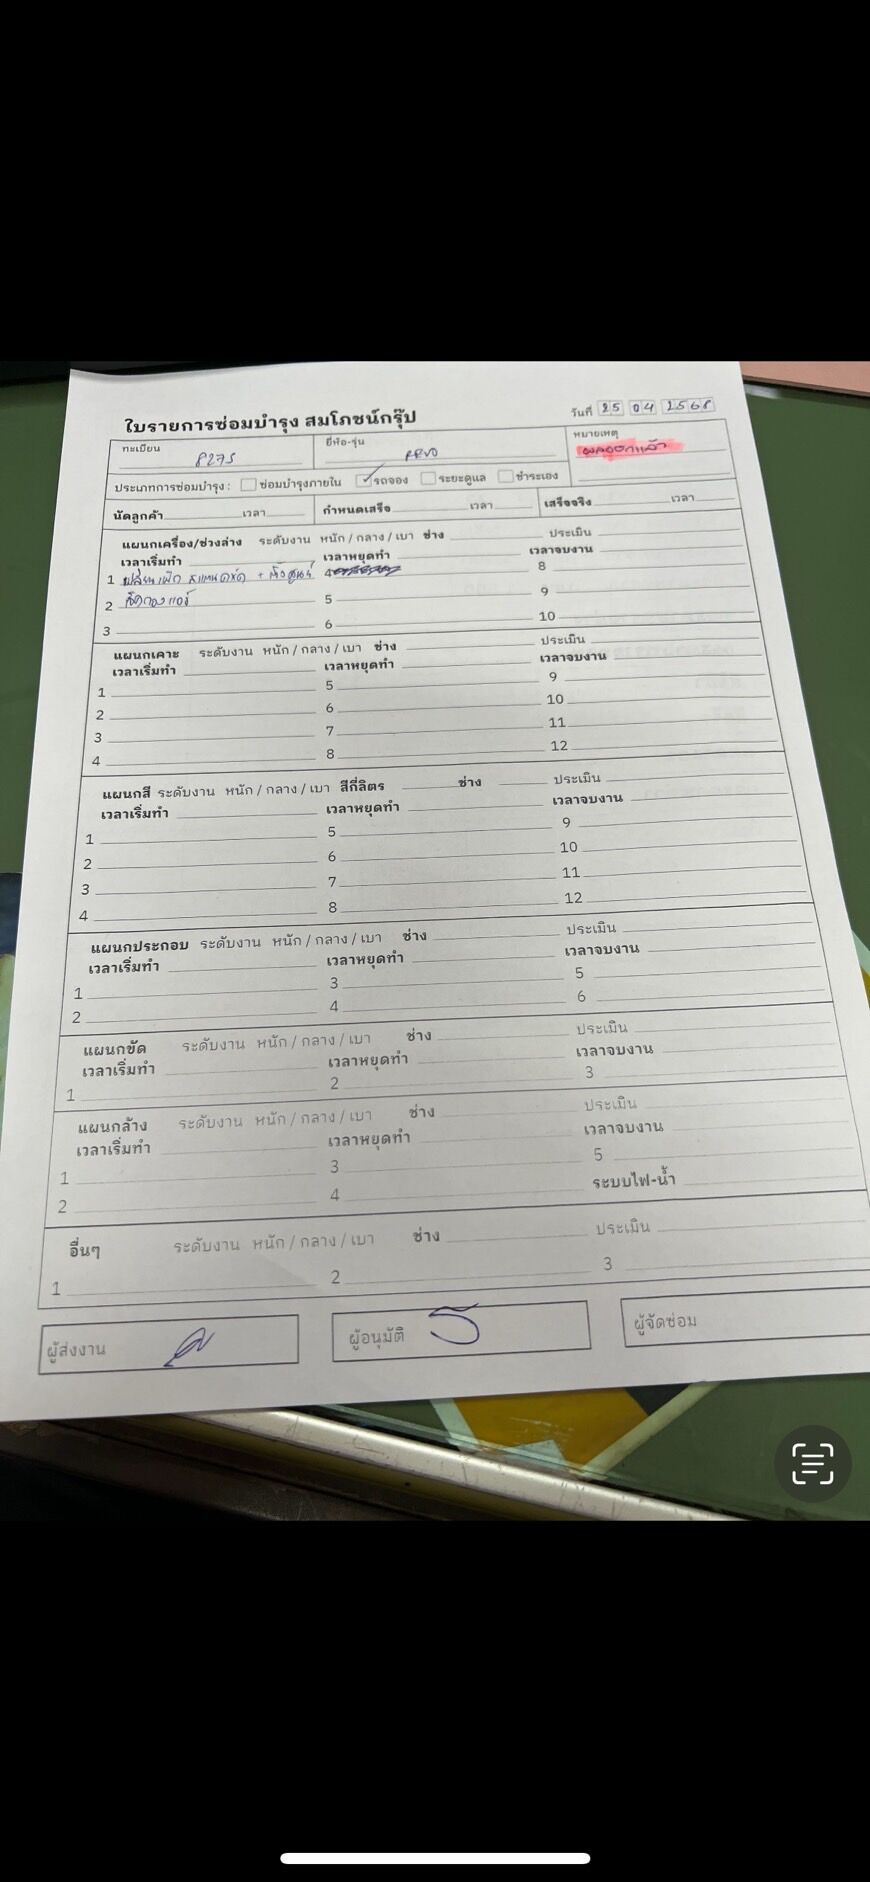 ใบรายการซ่อมบำรุง สมโภชน์กรุ๊ป
วันที่ 25 04 2568
ทะเบียน 8275 ยี่ห้อ-รุ่น REVO หมายเหตุ
ผลออกแล้ว
ประเภทการซ่อมบำรุง : ซ่อมบำรุงภายใน รถจอง ระยะดูแล ชำระเอง
นัดลูกค้า เวลา กำหนดเสร็จ เวลา เสร็จจริง เวลา
แผนกเครื่อง/ช่วงล่าง ระดับงาน หนัก / กลาง / เบา ช่าง ประเมิน
เวลาเริ่มทำ เวลาหยุดทำ เวลาจบงาน
1 เปลี่ยน + ตั้งศูนย์ 4 8
2 เช็ดกองแอร์ 5 9
3 6 10
แผนกเคาะ ระดับงาน หนัก / กลาง / เบา ช่าง ประเมิน
เวลาเริ่มทำ เวลาหยุดทำ เวลาจบงาน
1 5 9
2 6 10
3 7 11
4 8 12
แผนกสี ระดับงาน หนัก / กลาง / เบา สีกี่ลิตร ช่าง ประเมิน
เวลาเริ่มทำ เวลาหยุดทำ เวลาจบงาน
1 5 9
2 6 10
3 7 11
4 8 12
แผนกประกอบ ระดับงาน หนัก / กลาง / เบา ช่าง ประเมิน
เวลาเริ่มทำ เวลาหยุดทำ เวลาจบงาน
1 3 5
2 4 6
แผนกขัด ระดับงาน หนัก / กลาง / เบา ช่าง ประเมิน
เวลาเริ่มทำ เวลาหยุดทำ เวลาจบงาน
1 2 3
แผนกล้าง ระดับงาน หนัก / กลาง / เบา ช่าง ประเมิน
เวลาเริ่มทำ เวลาหยุดทำ เวลาจบงาน
1 3 5
2 4 ระบบไฟ-น้ำ
อื่นๆ ระดับงาน หนัก / กลาง / เบา ช่าง ประเมิน
1 2 3
ผู้ส่งงาน ผู้อนุมัติ ผู้จัดซ่อม